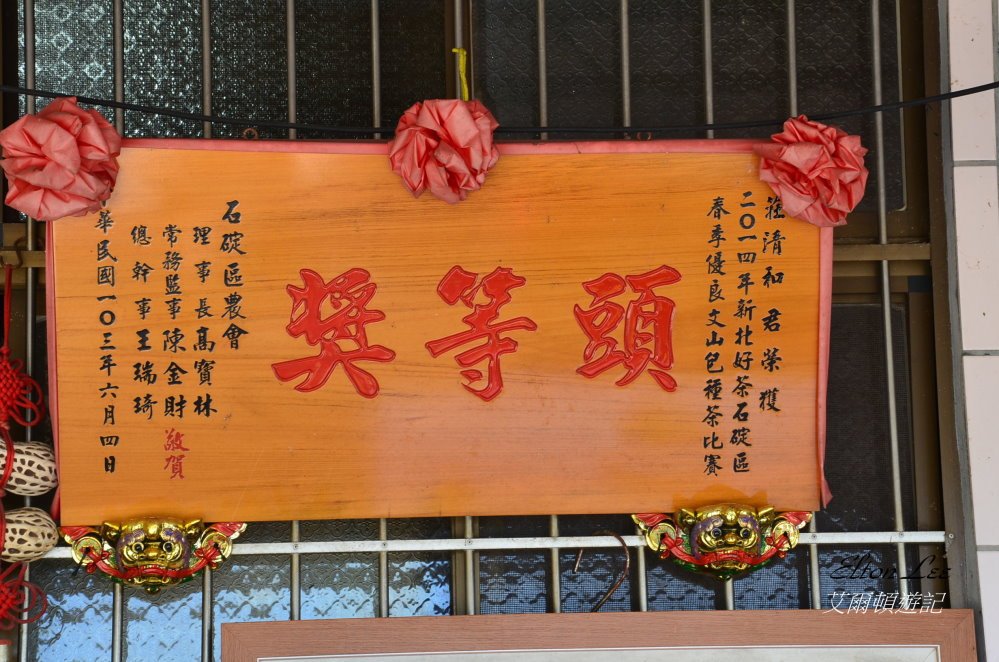 莊清和君榮獲
二〇一四年新北好茶石碇區
春季優良文山包種茶比賽
頭等獎
石碇區農會
理事長高寶林
常務監事陳金財
總幹事王瑞琦
敬賀
華民國一〇三年六月四日
Elton Lee
艾爾頓遊記